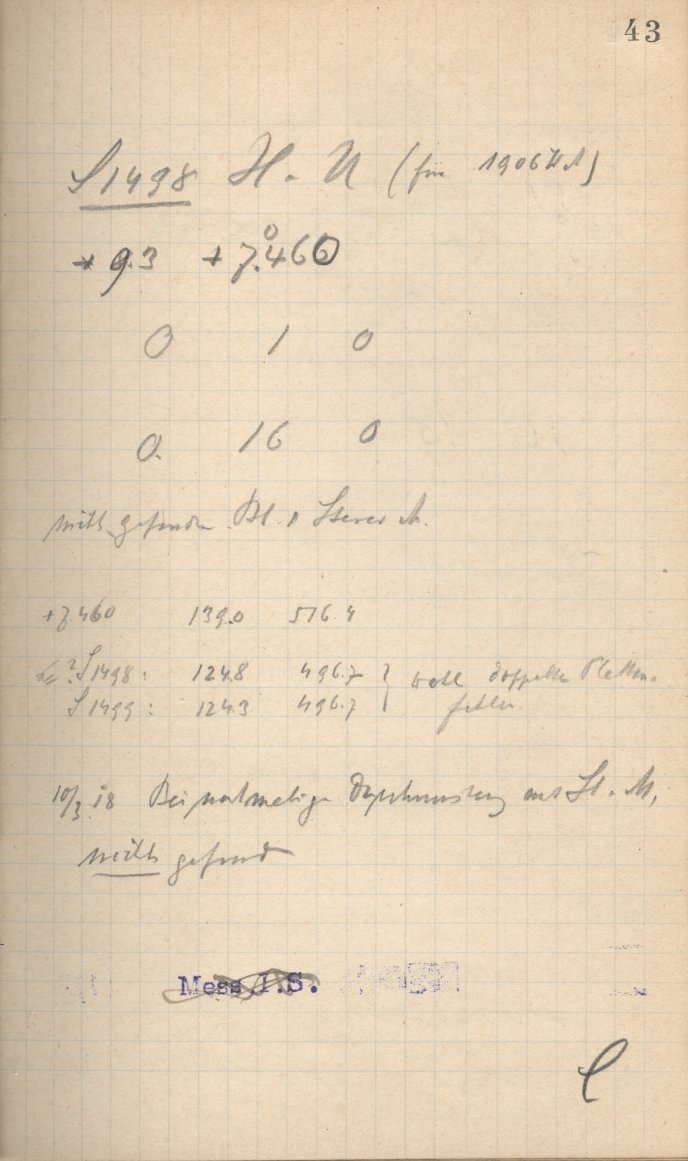 43
S 1498 H. N (für 1906 )
+ 9.3 + 7.°460
0 1 0
0. 16 0
nicht gefunden. Pl. Stereo M.
+7.460 139.0 516.4
? S 1498 : 124.8 496.7 } wohl doppelte Platten-
S 1499 : 124.3 496.7 fehler
10/3. 18 Bei nochmaliger Durchmusterung am St. M.
nicht gefunden
Mess I.S.